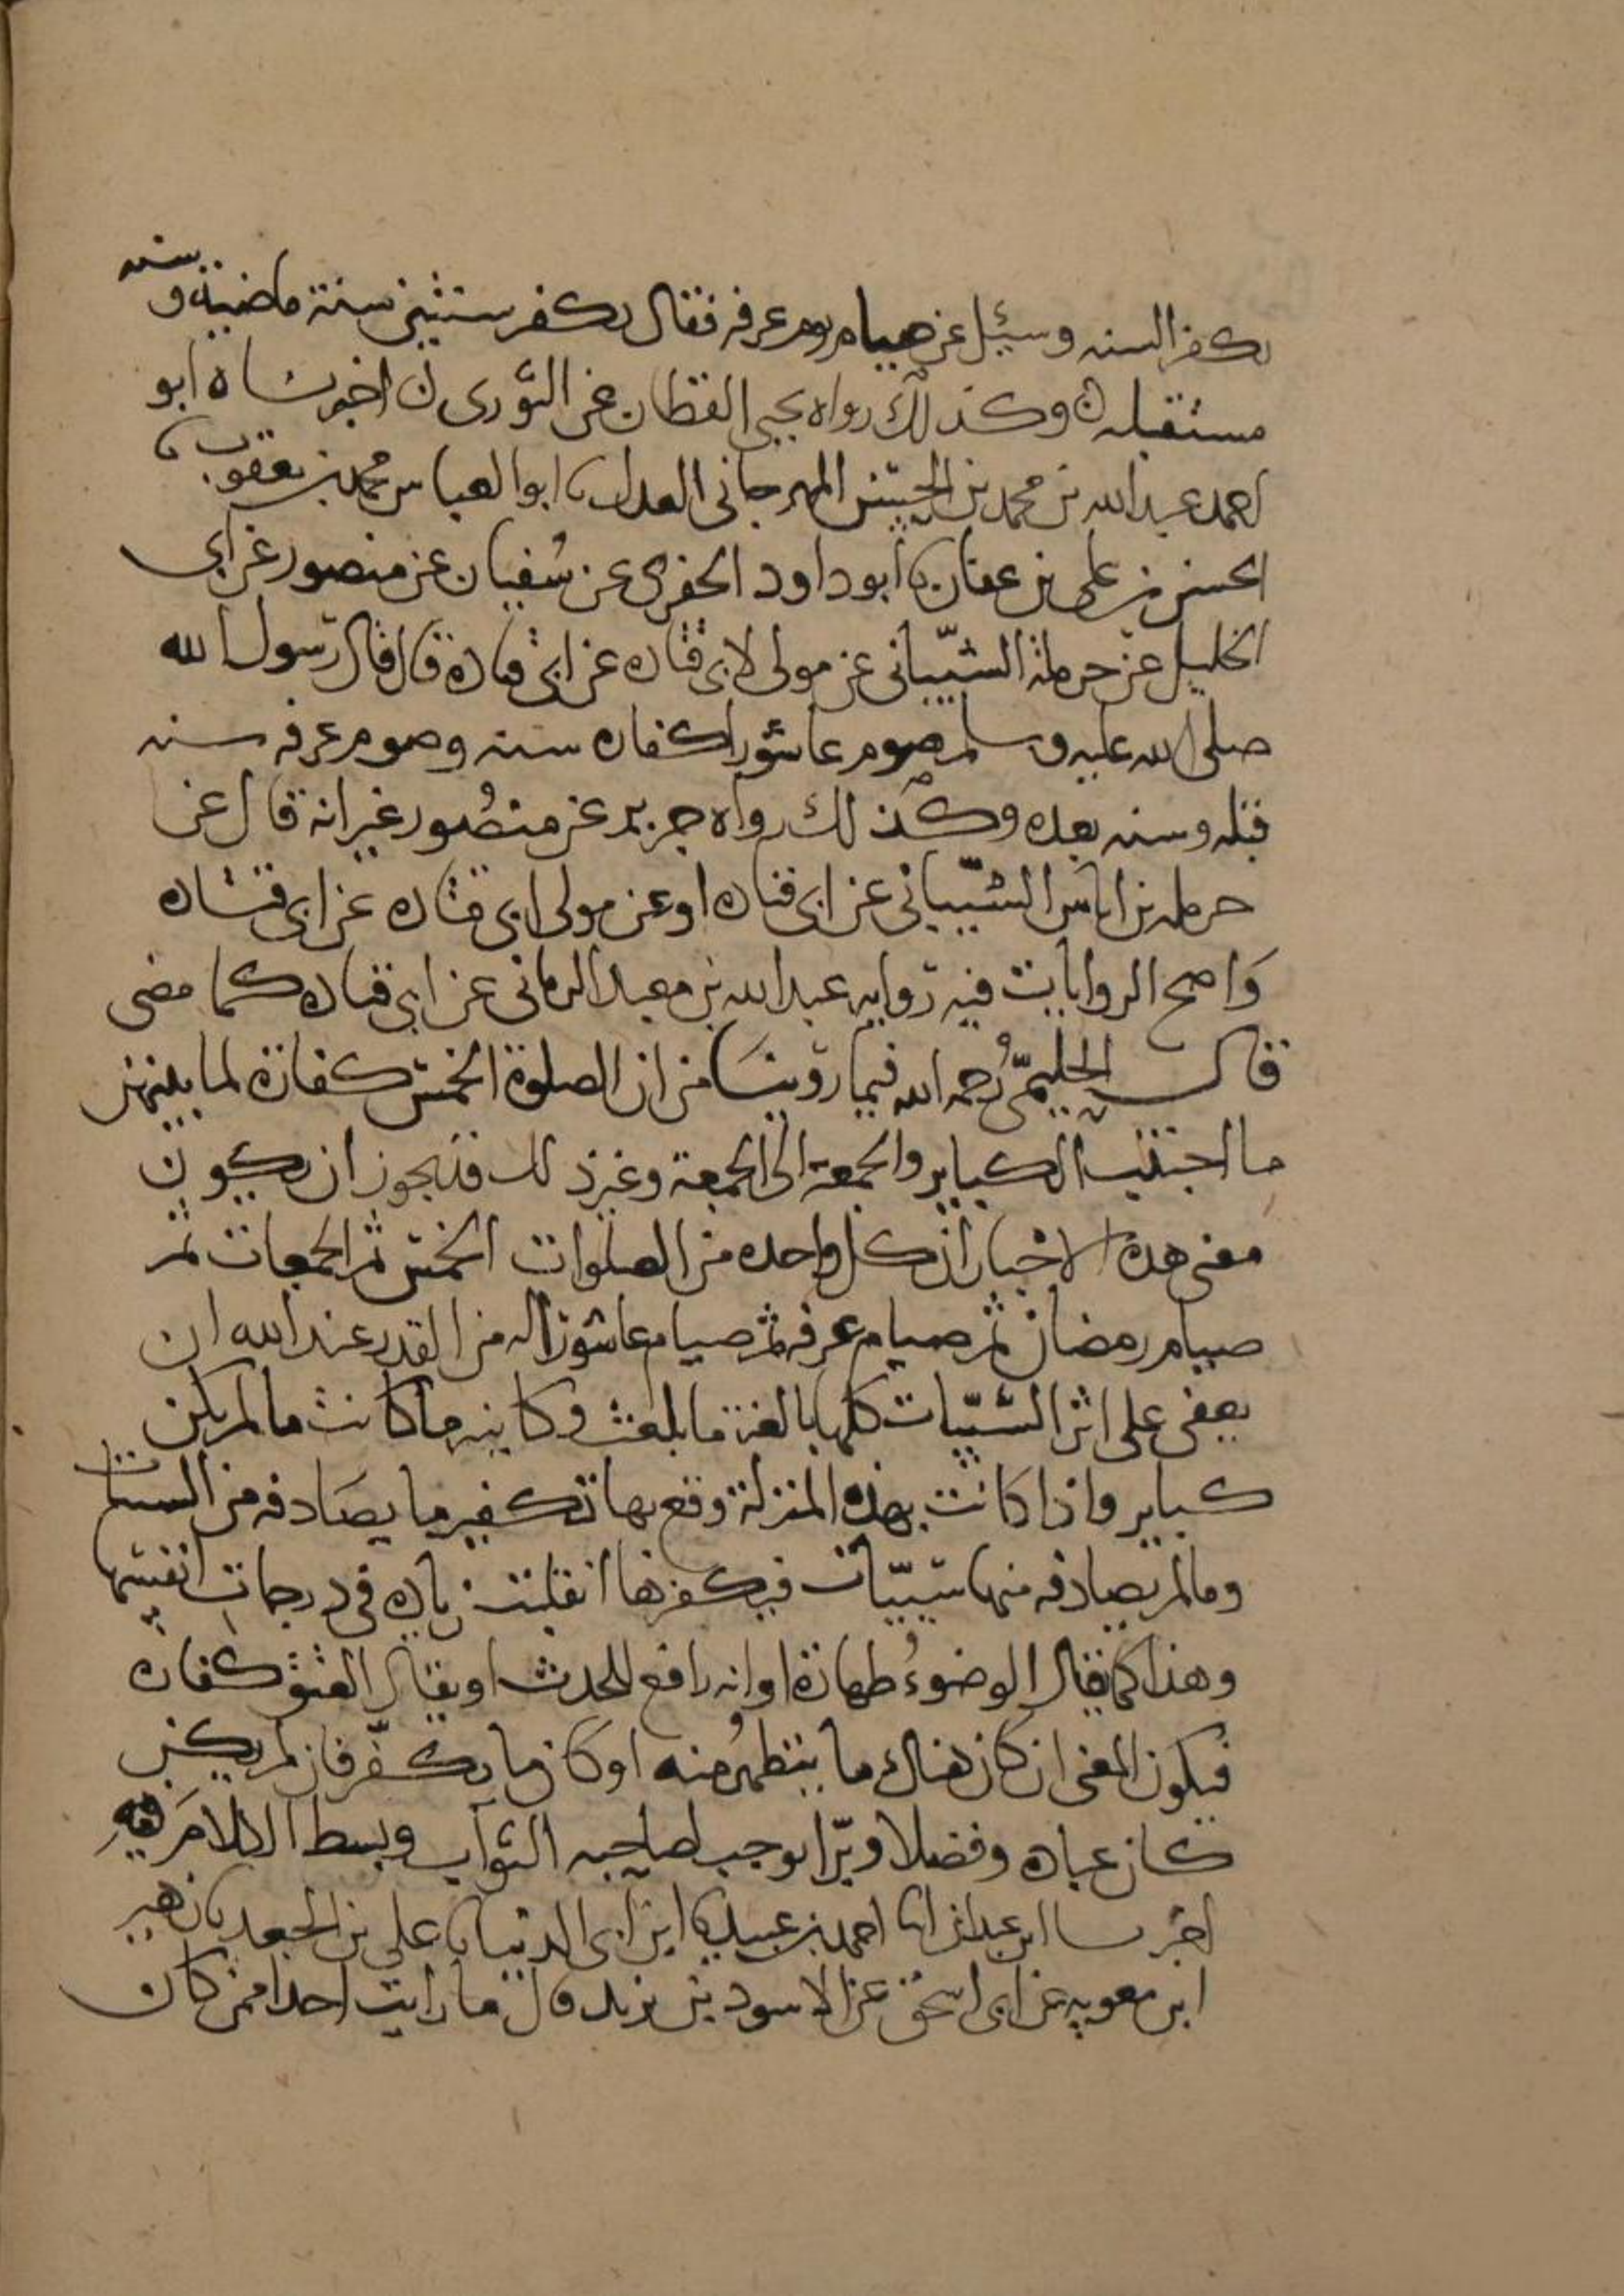 يكفر السنه وسئيل عن صيام يوم عرفه فقال يكفر سنتين سنة ماضية و سنه
مستقبله وكذلك رواه يحيى القطان عن الثوري اخبرناه ابو
احمد عبد الله بن محمد بن الحسن المهرجاني العدل نا ابو العباس محمد بن يعقوب نا
الحسن بن علي بن عفان نا ابو داود الحفري عن سفيان عن منصور عن ابي
الخليل عن حرملة الشيباني عن مولى لابي قتاده عن ابي قتادة قال قال رسول الله
صلى الله عليه وسلم صوم عاشورا كفاره سنه وصوم عرفه سنه
قبله وسنه بعده وكذلك رواه جرير عن منصور غير انه قال عن
حرمله بن اياس الشيباني عن ابي قتاده او عن مولى ابي قتاده عن ابي قتاده
واصح الروايات فيه روايه عبد الله بن معبد الزماني عن ابي قتاده كما مضى
قال الحليمي رحمه الله فيما روينا من ان الصلوة الخمس كفارة لما بينهن
ما اجتنبت الكباير والجمعة الى الجمعة وغير ذلك قد يجوز ان يكون
معنى هذه الاخبار ان كل واحده من الصلوات الخمس ثم الجمعات ثم
صيام رمضان ثم صيام عرفه ثم صيام عاشورا له من القدر عند الله ان
يعفى على اثر السيّيات كلها بالغة ما بلغت وكاينه ما كانت ما لم يكن
كباير واذا كانت بهذه المنزلة وقع بها تكفير ما يصادفه من السيات
وما لم يصادفه منها سيّيات فيكفرها انقلبت زياده في درجات انفسها
وهذا كما يقال الوضوءُ طهارة او انه رافع للحدث او يقال العتق كفاره
فيكون المعنى ان كان هناك ما يتطهرُ منه او كان ما يكفّر فان لم يكن
كان عباده وفضلا وبرّا يوجب لصاحبه الثواب وبسط الكلام فيه
اخبرنا ابن عبدان انا احمد بن عبيد نا ابن ابي الدنيا نا علي بن الجعد نا زهير
ابن معويه عن ابي اسحق عن الاسود بن يزيد قال ما رايت احدا ممن كان